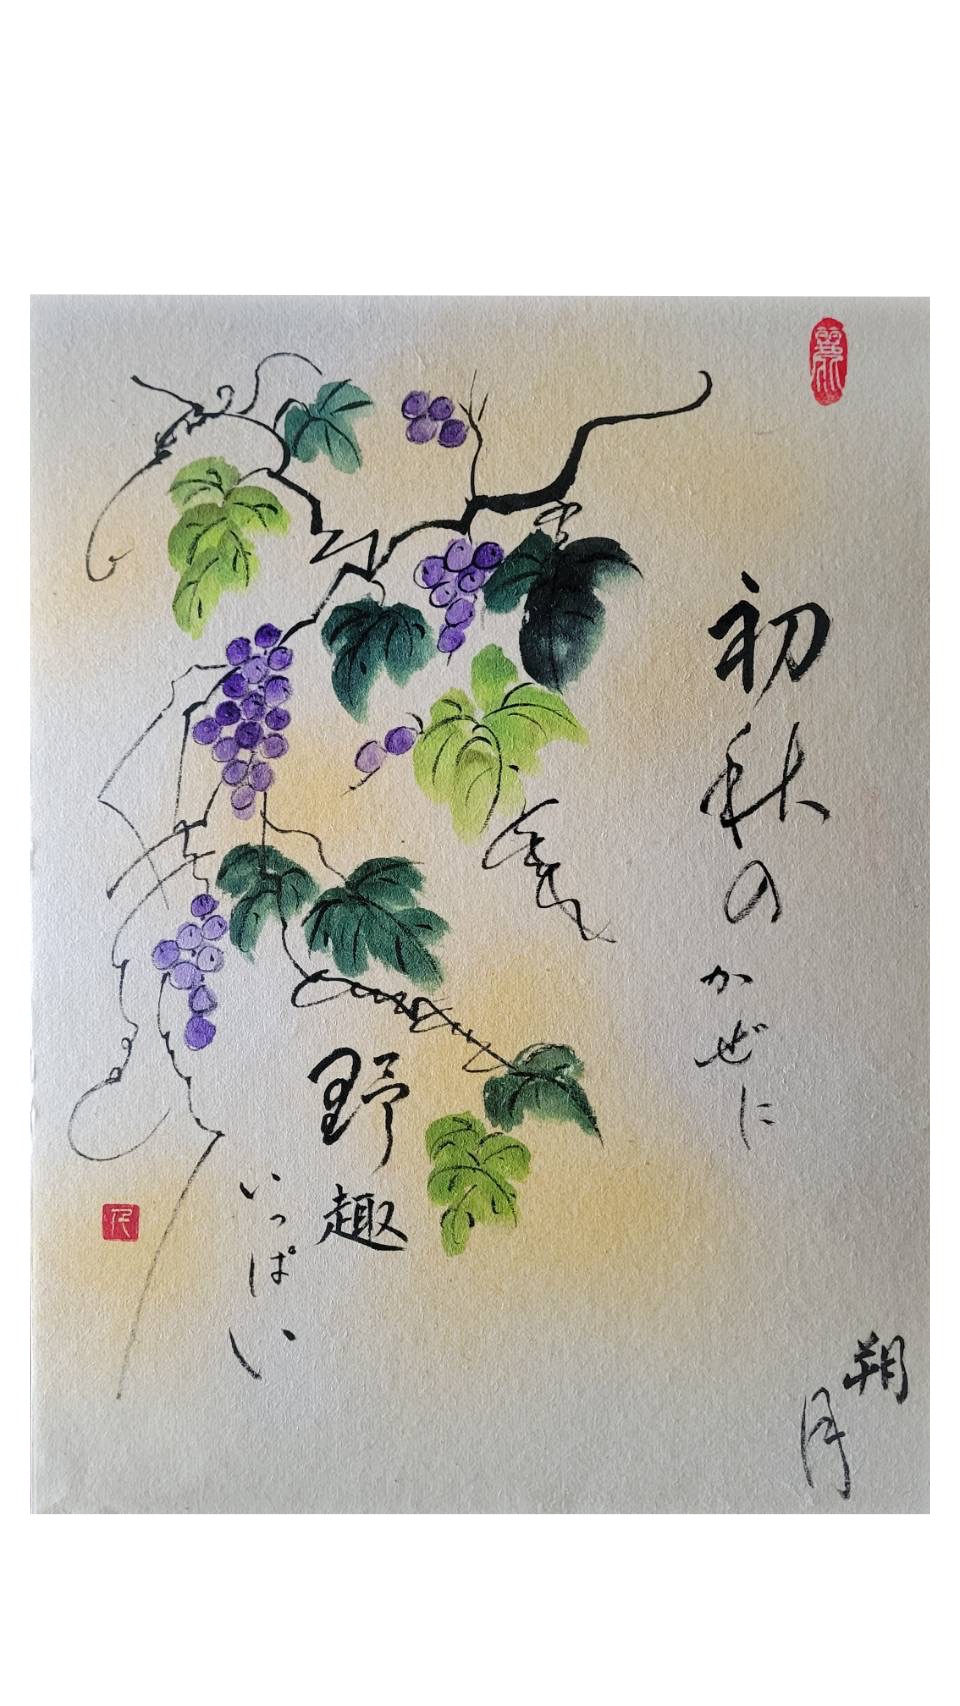 初秋の
かぜに
野趣
いっぱい
朔月